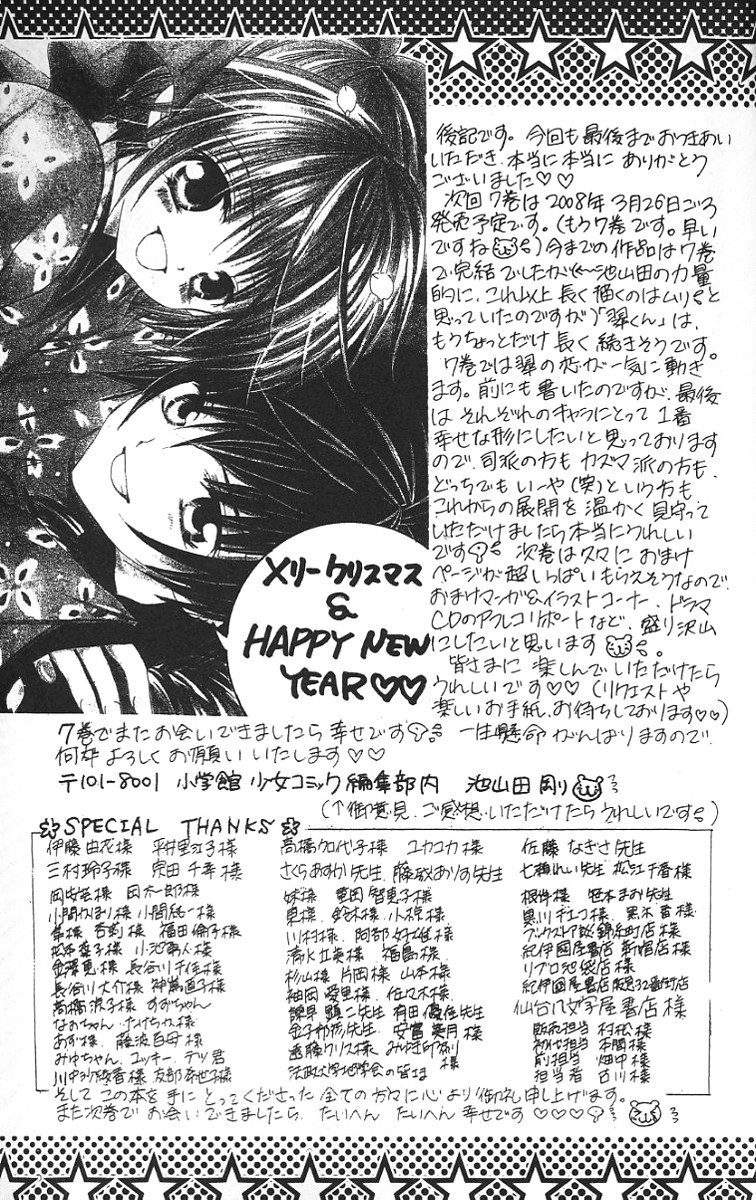 後記です。今回も最後までおつきあい
いただき、本当に本当に ありがとう
ございました♡♡
次回7巻は2008年3月26日ごろ
発売予定です。(もう7巻です。早い
ですね)今までの作品は7巻
で完結でしたが(←池山田の力量
的に、これ以上長く描くのはムリと
思っていたのですが)「翠くん」は、
もうちょっとだけ長く続きそうです。
7巻では翠の恋が一気に動き
ます。前にも書いたのですが、最後
はそれぞれのキャラにとって1番
幸せな形にしたいと思っております
ので、司派の方もカズマ派の方も、
どっちでもいーや(笑)という方も
これからの展開を温かく見守って
いただけましたら本当にうれしい
です 次巻は久々におまけ
ページが超いっぱいもらえそうなので、
おまけマンガ&イラストコーナー、ドラマ
CDのアフレコリポートなど、盛り沢山
にしたいと思います。
皆さまに楽しんでいただけたら
うれしいです♡♡(リクエストや
楽しいお手紙、お待ちしております♡♡)
メリークリスマス
&
HAPPY NEW
YEAR♡♡
7巻でまたお会いできましたら幸せです 一生懸命がんばりますので、
何卒よろしくお願いいたします♡♡
〒101-8001 小学館 少女コミック編集部内 池山田剛
(↑御意見、ご感想いただけたらうれしいです)
SPECIAL THANKS
伊藤由花様
三村玲子様
小池勇人様
長谷川大介様 神蔵直子様
高橋涼子様 すずちゃん
なおちゃん たけちよ様
あずみ様 藤波百母様
みゆちゃん、ユッキー、テツ君
高橋加代子様 ユカコカ様
さくらあすか先生、藤坂ありす先生
妹様 重田智恵子様
東様 鈴木様 小椋様
川村様、阿部好雄様
清水立美様 福島様
杉山様 片岡様 山本様
袖岡愛里様 佐々木様
諫早顕二先生 有田優佳先生
安富美月様
遠藤クリス様 みゆき印刷様
法政大学地学会の皆様
佐藤なぎさ先生
七海れい先生 松江千香様
根件様 笹本まお先生
黒川チエコ様、黒木苗様
ブックストア談錦糸町店様
紀伊國屋書店 新宿店様
リブロ池袋店様
仙台八文字屋書店様
販売担当 村松様
初代担当 本間様
前担当 畑中様
担当者 古川様
そしてこの本を手にとってくださった全ての方々に心より御礼申し上げます。
また次巻でお会いできましたら、たいへん たいへん幸せです♡♡♡